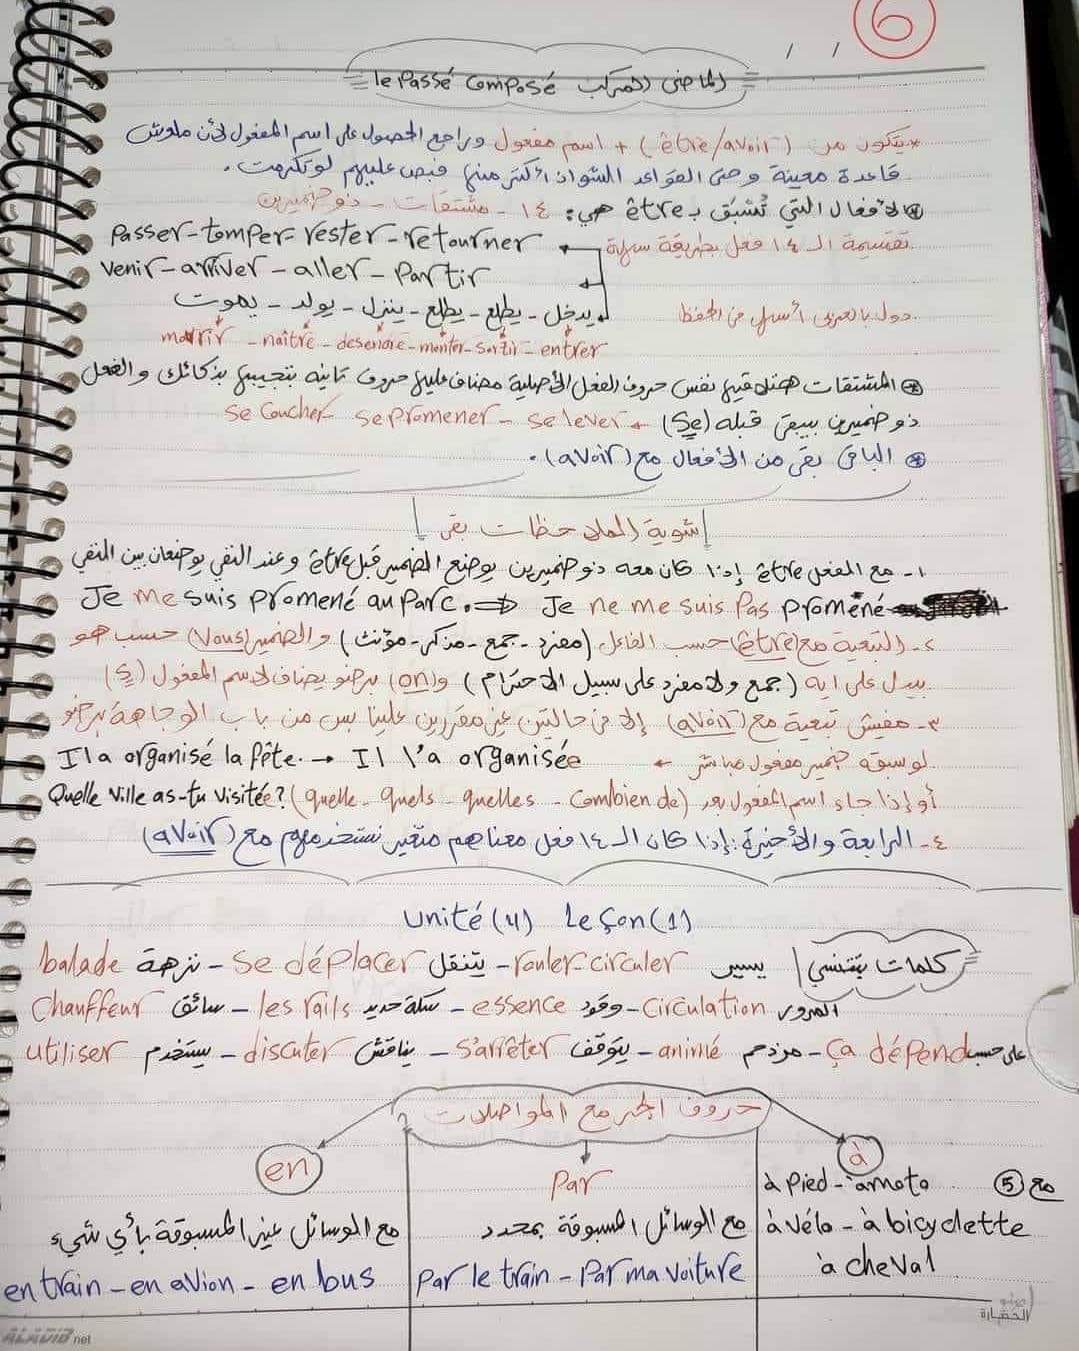 6
/ /
le Passé Composé الماضى المركب
* يتكون من (être/avoir) + اسم مفعول وراجع الحصول على اسم المفعول لأن ملوش
قاعدة معينة وحتى القواعد الشواذ أكتر منها فبص عليهم لو تكرمت.
* الأفعال التي تُسبَق بـ être هي: ١٤ - مشتقات - ذو ضميرين
تقسيمة الـ ١٤ فعل بطريقة سهلة
Passer - tomper - rester - retourner
venir - arriver - aller - Partir
يدخل - يطلع - يطلع - ينزل - يولد - يموت
دول بالعربى أسهل فى الحفظ
mourir - naître - desendre - monter - sortir - entrer
* المشتقات هتلاقيها نفس حروف الفعل الأصلية مضاف عليها حروف تانيه بتجيبها بذكائك والفعل
ذو ضميرين بيبقى قبله (se) ← se lever - se promener - se coucher
* الباقى بقى من الأفعال مع (avoir).
شوية الملاحظات بقى
١- مع الفعل être إذا كان معه ذو ضميرين يوضع الضمير قبل être وعند النفى يوضعان بين النفى
Je me suis promené au Parc. ⇒ Je ne me suis Pas promené
٢- التبعية مع (être) حسب الفاعل (مفرد - جمع - مذكر - مؤنث) والضمير (vous) حسب هو
بيدل على ايه (جمع ولا مفرد على سبيل الاحترام) و(on) برضو يضاف لاسم المفعول (s)
٣- مفيش تبعية مع (avoir) إلا فى حالتين غير مقررين علينا بس من باب الوجاهة برضو
لو سبقه ضمير مفعول مباشر ← Il a organisé la fête. → Il l'a organisée
أو إذا جاء اسم المفعول بعد (quelle - quels - quelles - Combien de) Quelle ville as-tu visitée?
٤- الرابعة والأخيرة: إذا كان الـ ١٤ فعل معناهم متغير نستخدمهم مع (avoir)
Unité (4) Leçon (1)
كلمات بتتنسي | يسير rouler - circuler - يتنقل se déplacer - نزهة balade
المرور Circulation - وقود essence - سكة حديد les rails - سائق Chauffeur
على حسب Ça dépend - مزدحم animé - يتوقف s'arrêter - يناقش discuter - يستخدم utiliser
حروف الجر مع المواصلات
en
Par
à
مع الوسائل غير المسبوقة بأي شيء
en train - en avion - en bus
مع الوسائل المسبوقة بمحدد
Par le train - Par ma voiture
مع (5) à Pied - à moto
à vélo - à bicyclette
à cheval
الحضارة
ALAVIB.net